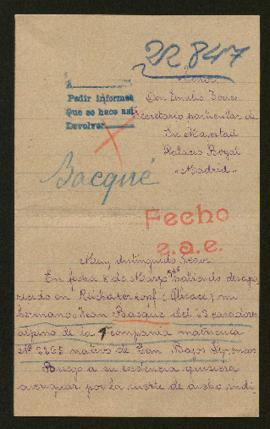 22,847
A
Pedir informes
Que se hace así
Devolver
Señor
Don Emilio Torres
Secretario particular de
Su Majestad
Palacio Royal
Madrid
Bacqué
Fecho
e.a.e.
Muy distinguido Señor
En fecha 5 de Marzo habiendo desapa
recido en Reicharerkopf (Alsace) mi
hermano Jean Basque del 23 cazadores
alpino de la compania matricula
Nº 2265 nativo de Pau Bajos Pirineos
Ruego a su excelencia quisiera
averiguar por la suerte de dicho indi